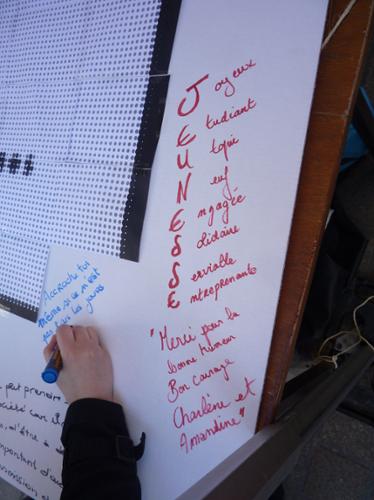 Joyeux
Etudiant
Utopie
Neuf
Engagée
Solidaire
Serviable
Entreprenante
"Merci pour la
bonne humeur
Bon courage
Charlène et
Amandine"
Accroche toi
même si ce n'est
pas tous les jours
peut prendre
société car il
m'être à
important d'